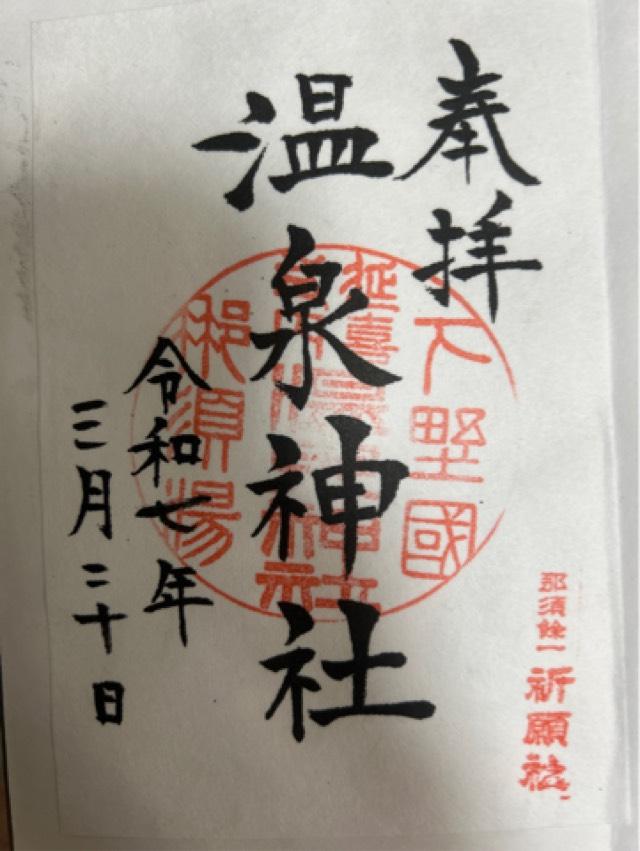 奉拝
下野國
延喜
温泉神社
那須湯
令和七年
三月二十日
那須餘一
祈願社